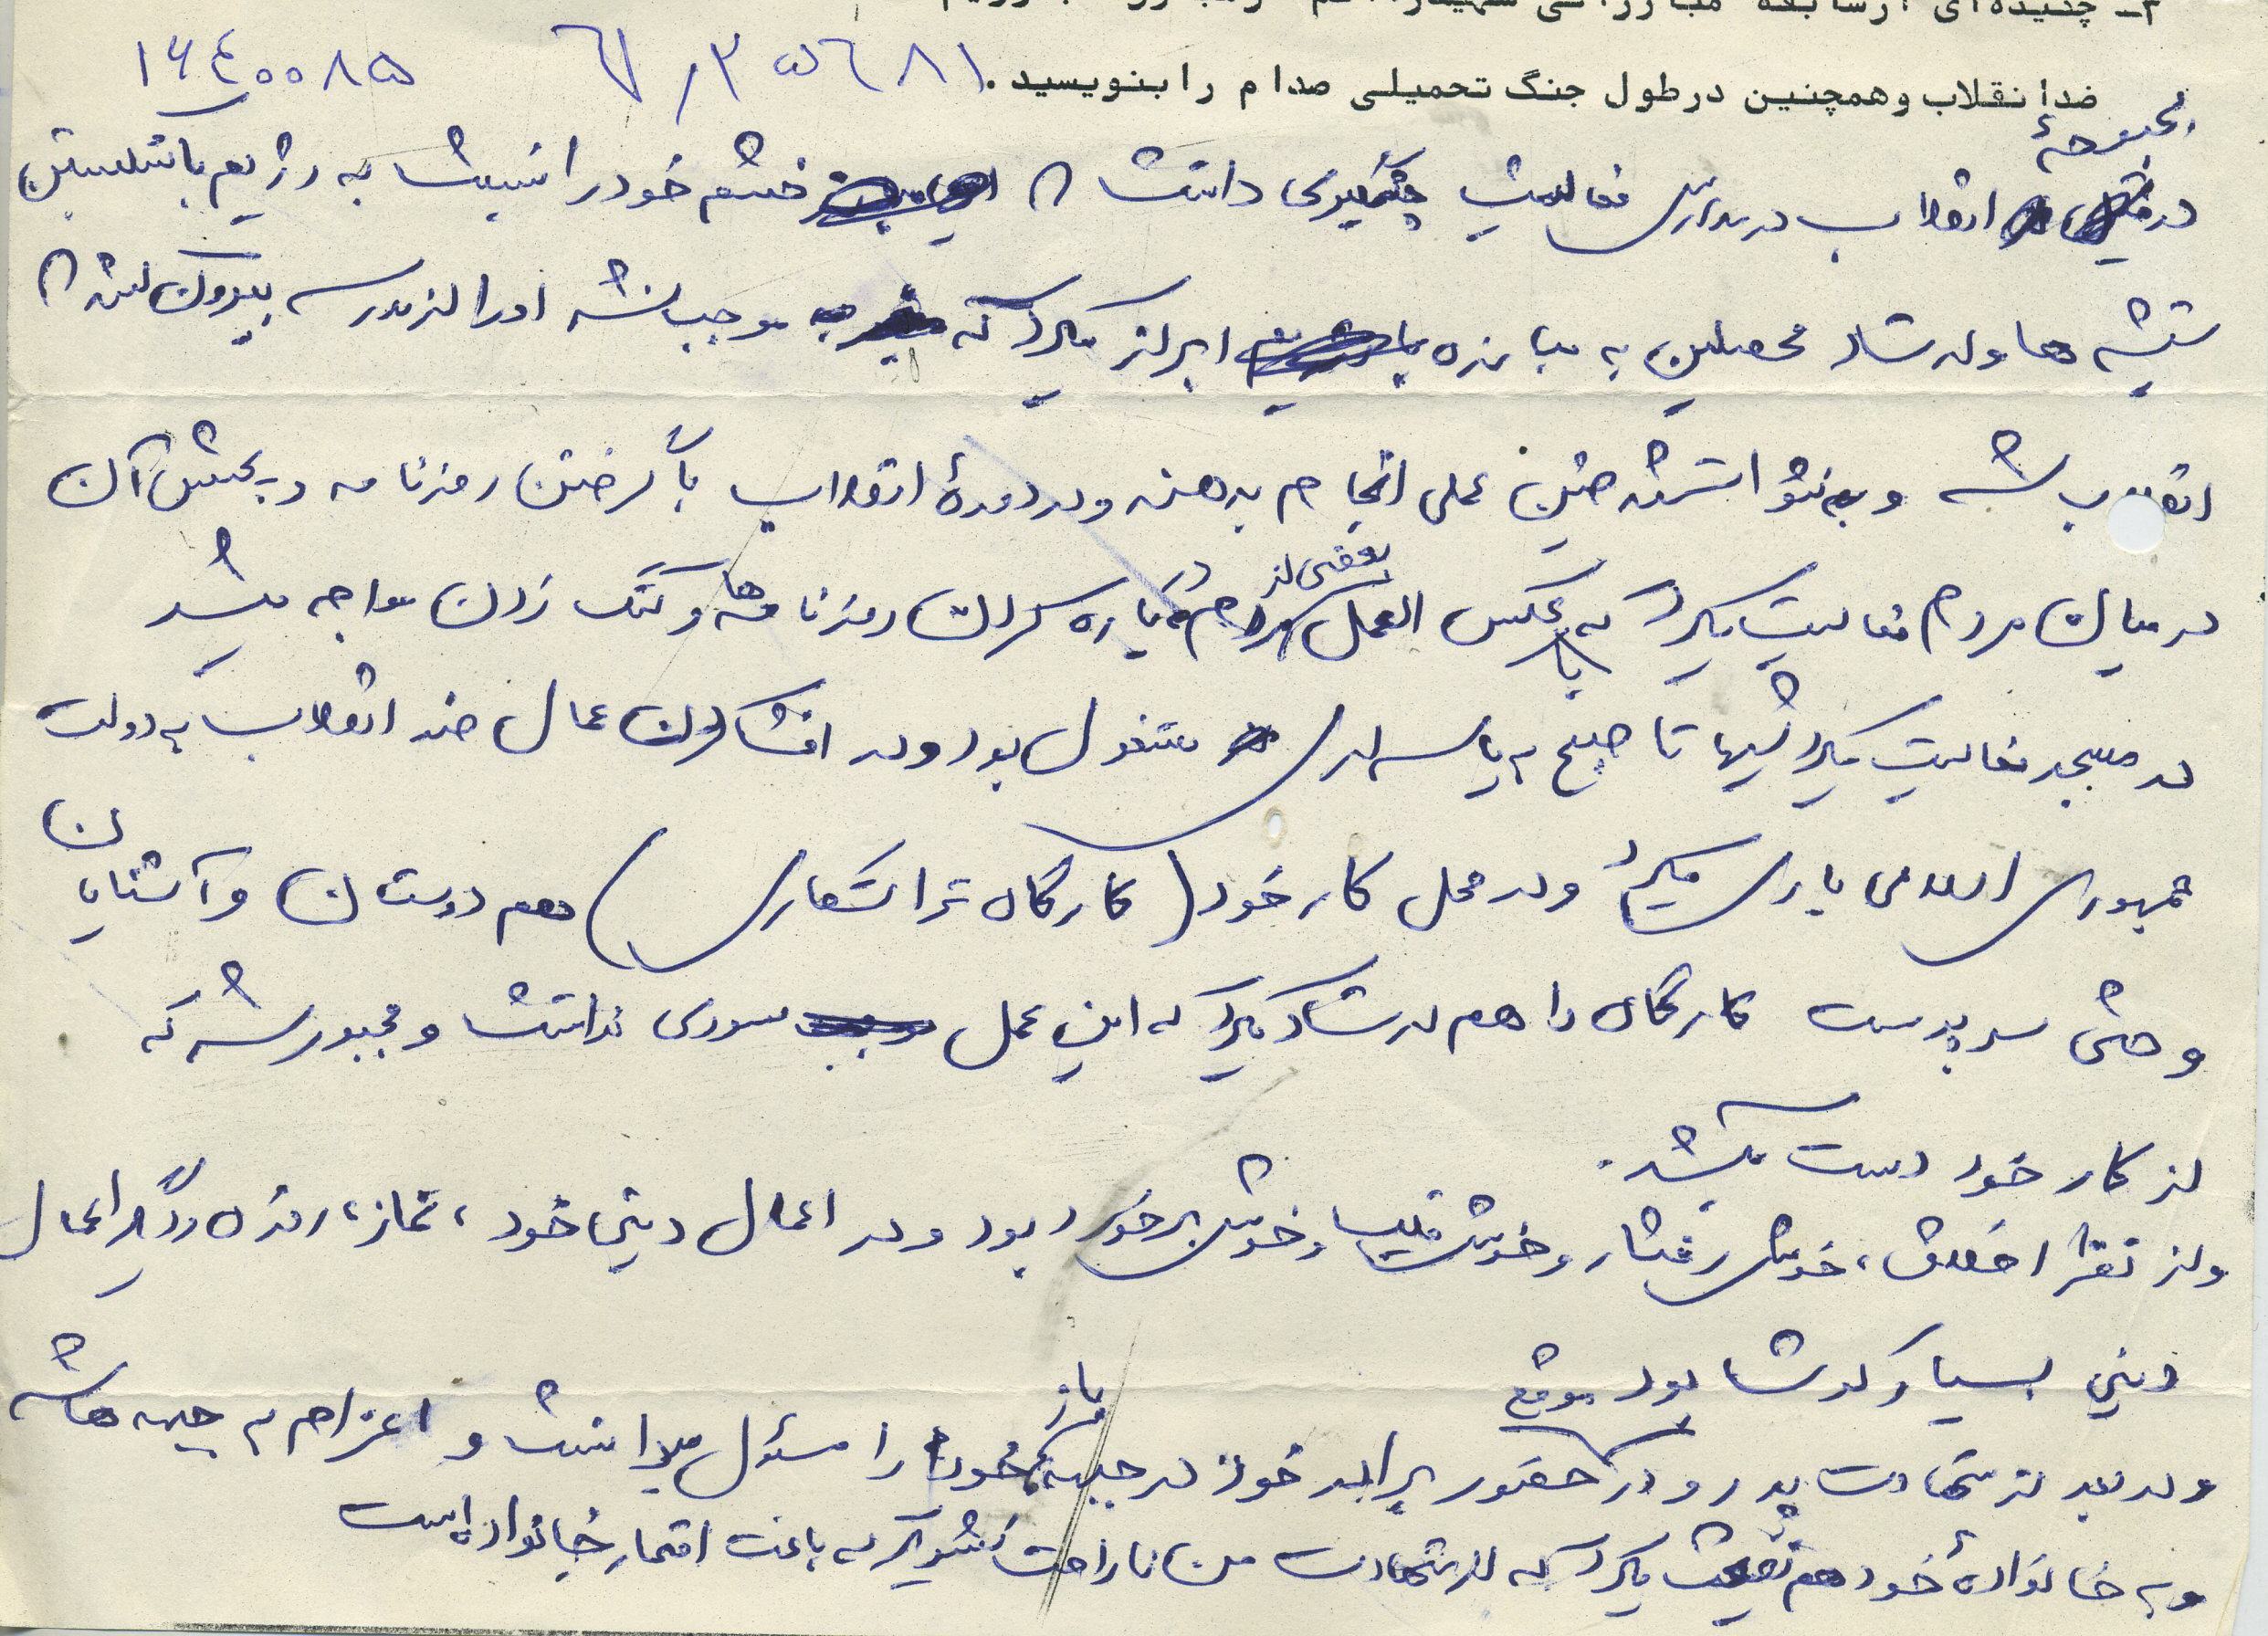 ۳ـ چکیده‌ای از سابقه مبارزاتی شهید
ضد انقلاب و همچنین در طول جنگ تحمیلی صدام را بنویسید.
۱۶۴۰۰۸۵
بحبوحهٔ
در انقلاب در مدارس فعالیت چشمگیری داشت خشم خود را نسبت به رژیم با شکستن
شیشه ها و ارشاد محصلین به مبارزه ابراز میکرد که موجب شد او را از مدرسه بیرون کنند
انقلاب شد و نتوانستند چنین عملی انجام بدهند و در دورهٔ انقلاب با گرفتن روزنامه و پخش آن
در میان مردم فعالیت میکرد که با عکس العمل بعضی از مردم در پاره کردن روزنامه ها و کتک زدن مواجه میشد
در مسجد فعالیت میکرد شبها تا صبح به پاسداری مشغول بود و در افشا کردن عمال ضد انقلاب به دولت
جمهوری اسلامی یاری میکرد و در محل کار خود ( کارگاه تراشکاری ) هم دوستان و آشنایان
و حتی سرپرست کارگاه را هم ارشاد میکرد که این عمل سودی نداشت و مجبور شد که
از کار خود دست بکشد.
و از نظر اخلاق، خوش رفتار و خوش و خوش برخورد بود و در اعمال دینی خود، نماز، روزه و دیگر اعمال
دینی بسیار کوشا بود
و در بعد از شهادت پدر و در موقع حضور برادر خود در جبهه باز خود را مسئول میدانست و اعزام به جبهه ها شد
و به خانوادهٔ خود هم میکرد که از شهادت من ناراحت نشوید که باعث افتخار خانواده است